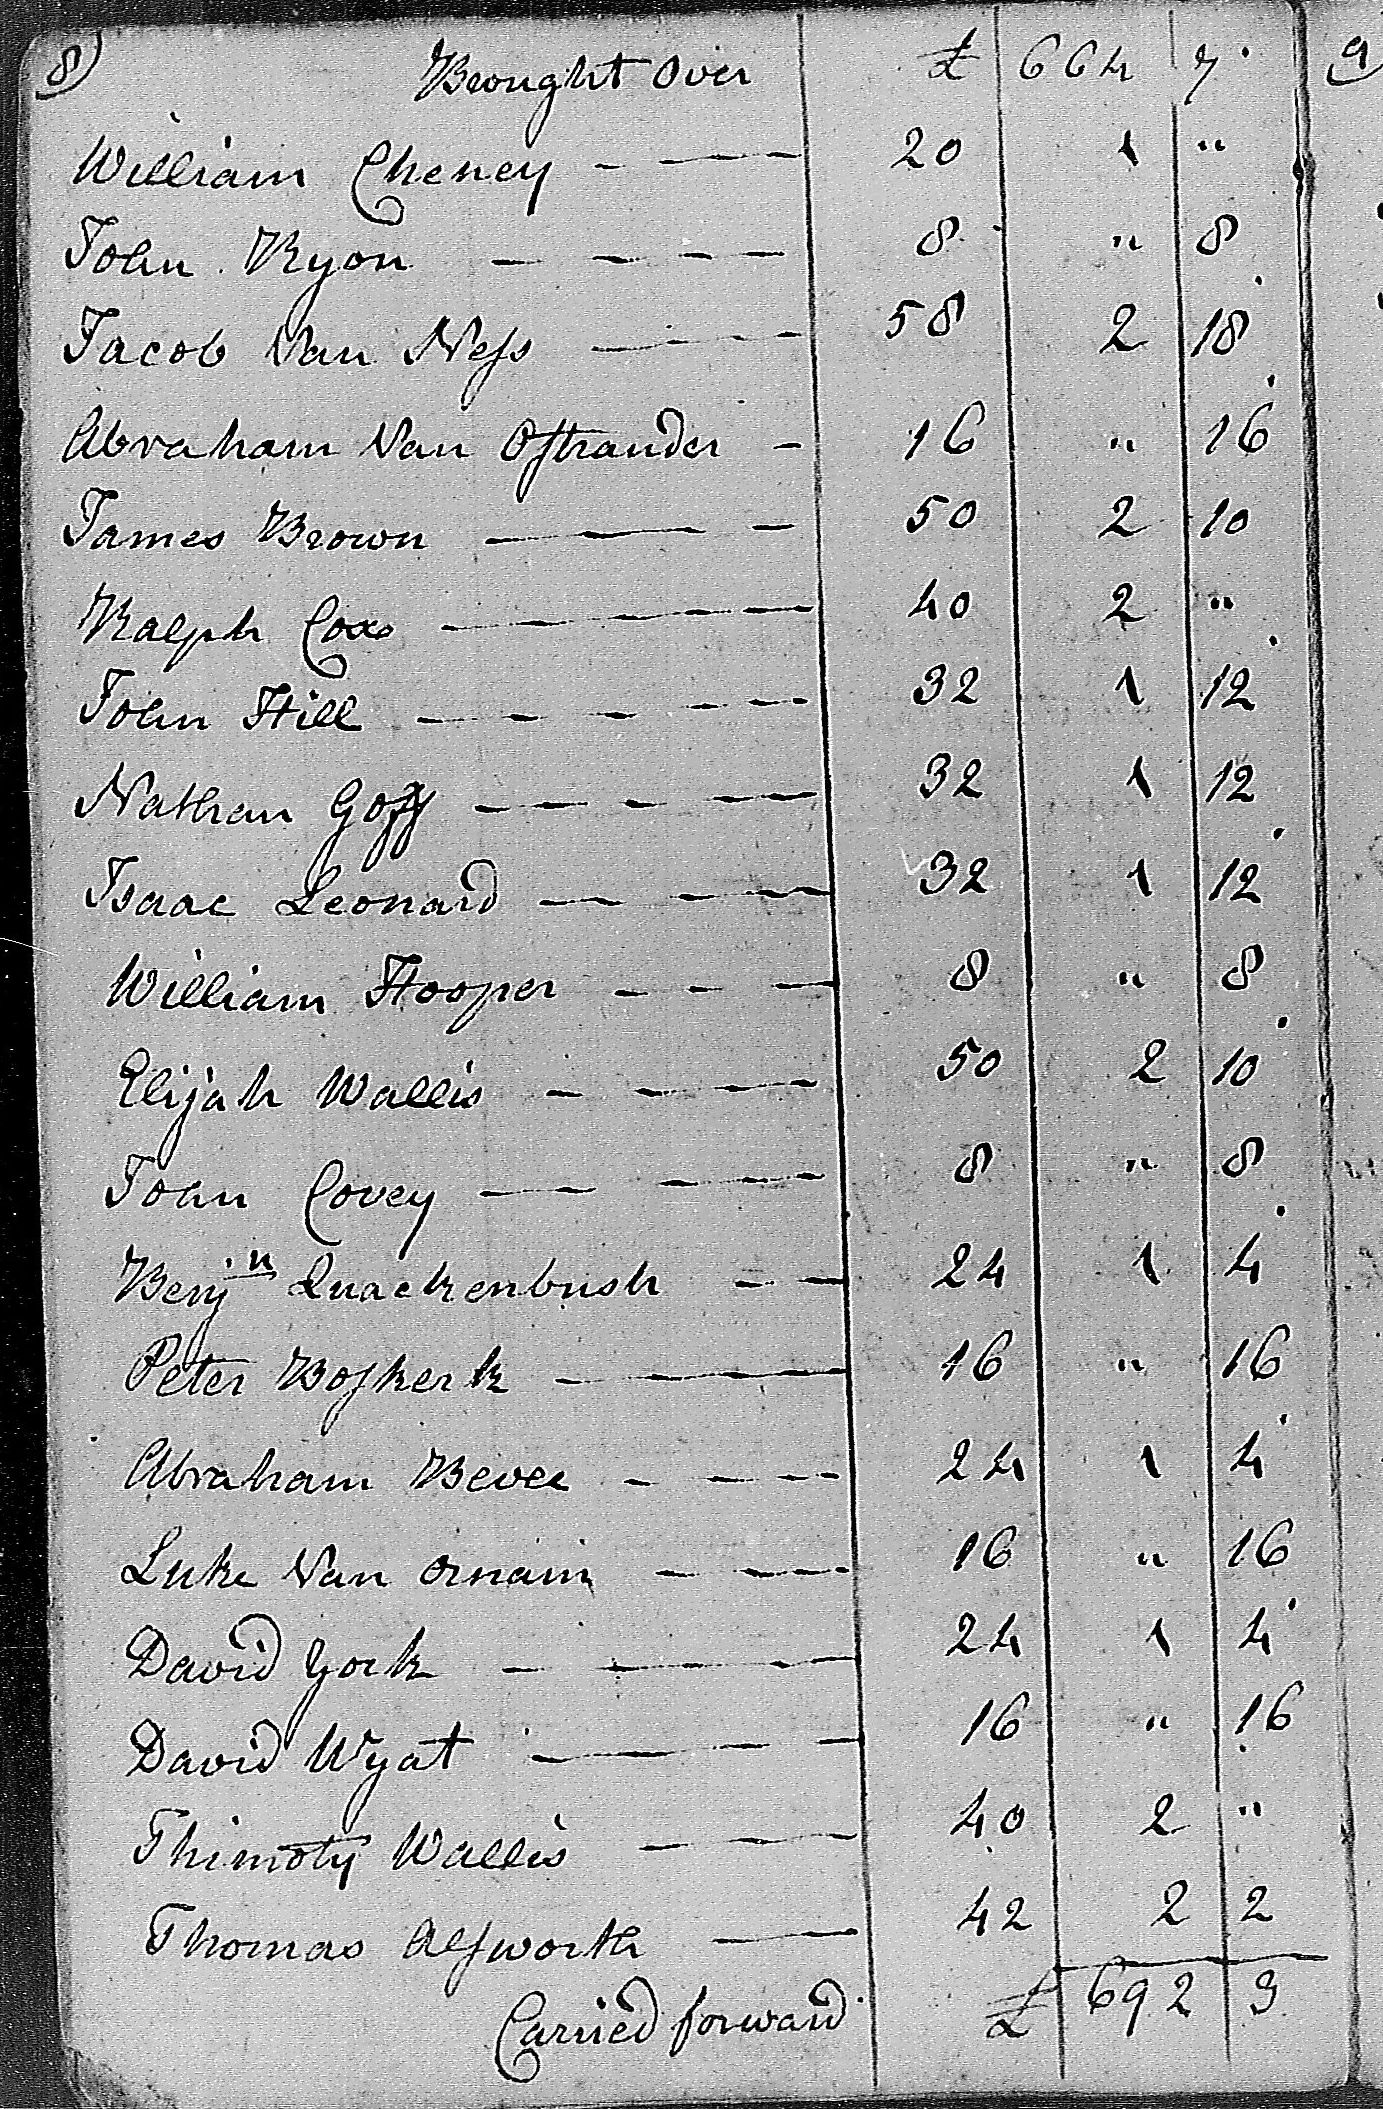 8) Brought Over £ 664 7 9)
William Cheney 20 1 "
John Ryon 8 " 8
Jacob Van Ness 58 2 18
Abraham Van Ostrander 16 " 16
James Brown 50 2 10
Ralph Cox 40 2 "
John Hill 32 1 12
Nathan Goff 32 1 12
Isaac Leonard 32 1 12
William Hooper 8 " 8
Elijah Wallis 50 2 10
John Covey 8 " 8
Benjn Quackenbush 24 1 4
Peter Boskerk 16 " 16
Abraham Bevee 24 1 4
Luke Van 16 " 16
David York 24 1 4
David Wyat 16 " 16
Thimoty Wallis 40 2 "
Thomas Alsworth 42 2 2
Carried forward £ 692 3